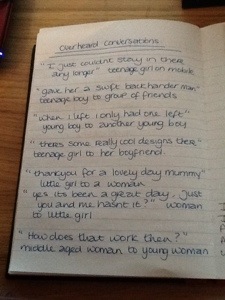 Overheard Conversations
"I just couldnt stay in there
any longer" teenage girl on mobile
"gave her a swift backhander man"
teenage boy to group of friends
"when I left i only had one left"
young boy to another young boy
"theres some really cool designs there"
teenage girl to her boyfriend.
"thankyou for a lovely day mummy"
little girl to a woman
"yes its been a great day, just
you and me hasnt it?" woman
to little girl
"How does that work then?"
middle aged woman to young woman